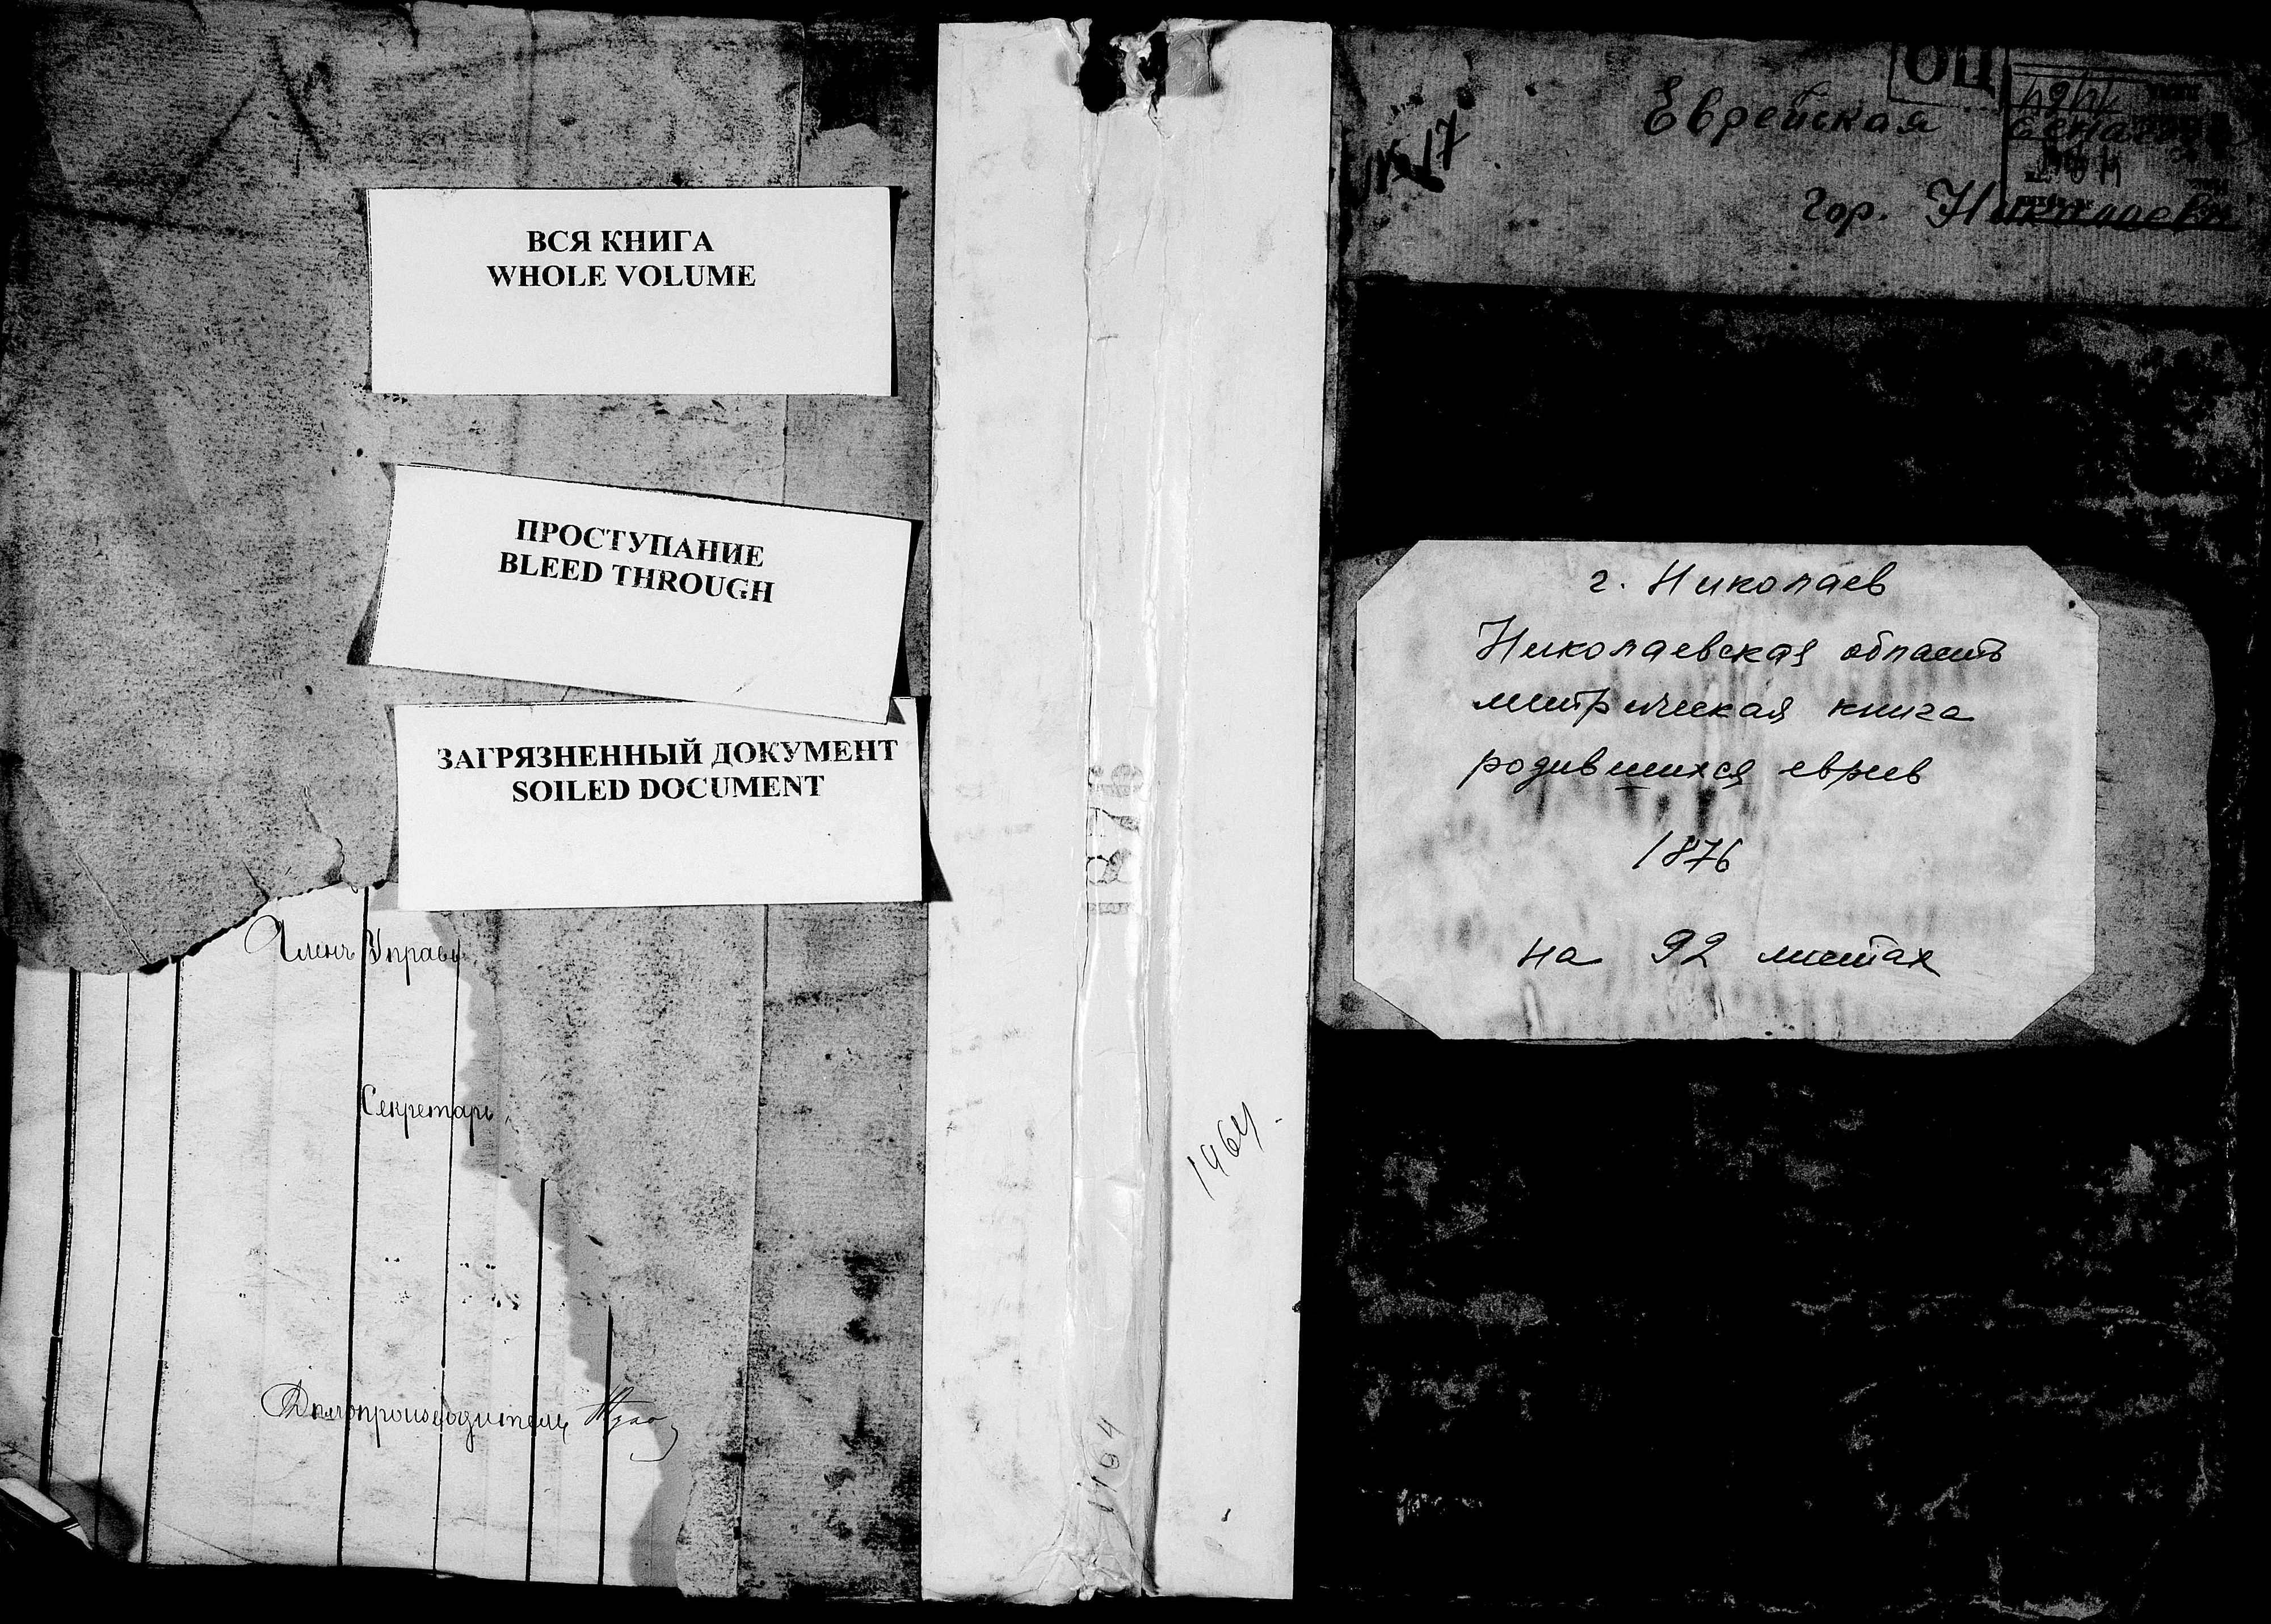 ВСЯ КНИГА
WHOLE VOLUME
ПРОСТУПАНИЕ
BLEED THROUGH
ЗАГРЯЗНЕННЫЙ ДОКУМЕНТ
SOILED DOCUMENT
Членъ Управы
Секретарь
Делопроизводитель
1876
1964
1964
ОЦ
№ 17
Еврейская
гор. Николаевъ
г. Николаев
Николаевская область
метрическая книга
родившихся евреев
1876
на 92 листах